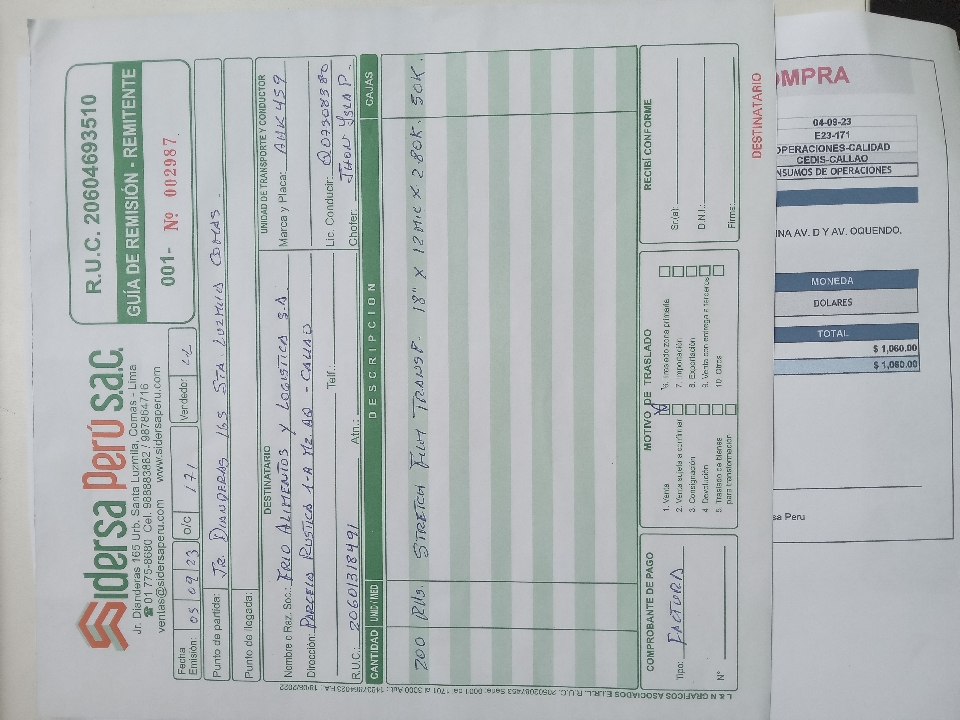 Sidersa Perú s.a.c.
Jr. Dianderas 165 Urb. Santa Luzmila, Comas - Lima
☎ 01 775-8680 Cel. 988883882 / 987864716
ventas@sidersaperu.com www.sidersaperu.com
R.U.C. 20604693510
GUÍA DE REMISIÓN - REMITENTE
001- Nº 002987
Fecha Emisión: 05 09 23 O/C 171 Vendedor
Punto de partida: JR. DIANDERAS 165 STA. LUZMILA COMAS.
Punto de llegada:
DESTINATARIO
Nombre o Raz. Soc.: FRIO ALIMENTOS Y LOGISTICA S.A.
Dirección: PARCELA RUSTICA 1-A MZ. AQ - CALLAO
Telf.:
R.U.C.: 20601318491 Atn.:
UNIDAD DE TRANSPORTE Y CONDUCTOR
Marca y Placa: AHK 459
Lic. Conducir: Q07508380
Chofer: JHON YSLA P.
CANTIDAD UNID/MED D E S C R I P C I O N CAJAS
200 Rlls STRETCH FILM TRANSP. 18" X 12MIC X 2.80K. 50K.
COMPROBANTE DE PAGO
Tipo: FACTURA
N°
MOTIVO DE TRASLADO
1. Venta
2. Venta sujeta a confirmar
3. Consignación
4. Devolución
5. Traslado de bienes para transformación
6. Traslado zona primaria
7. Importación
8. Exportación
9. Venta con entrega a terceros
10. Otros
RECIBÍ CONFORME
Sr.(a):
D.N.I.:
Firma:
DESTINATARIO
L & N GRAFICOS ASOCIADOS E.I.R.L.
OMPRA
04-09-23
E23-171
OPERACIONES-CALIDAD
CEDIS-CALLAO
NSUMOS DE OPERACIONES
NA AV. D Y AV. OQUENDO,
MONEDA
DOLARES
TOTAL
$ 1,060.00
$ 1,060.00
sa Peru